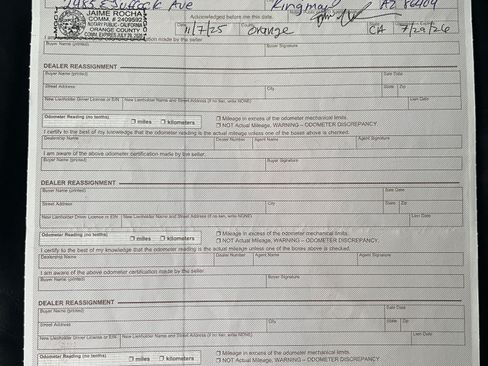 Suffock Ave Kingman AZ 86409
JAIME ROCHA
COMM. # 2409592
NOTARY PUBLIC - CALIFORNIA
ORANGE COUNTY
COMM. EXPIRES JULY 29, 2026
Acknowledged before me this date.
11/7/25 Orange CA 7/29/26
Buyer Name (printed) Buyer Signature
DEALER REASSIGNMENT
Buyer Name (printed) Sale Date
Street Address City State Zip
New Lienholder Driver License or EIN New Lienholder Name and Street Address (if no lien, write NONE) Lien Date
Odometer Reading (no tenths) miles kilometers Mileage in excess of the odometer mechanical limits.
NOT Actual Mileage, WARNING – ODOMETER DISCREPANCY.
I certify to the best of my knowledge that the odometer reading is the actual mileage unless one of the boxes above is checked.
Dealership Name Dealer Number Agent Name Agent Signature
I am aware of the above odometer certification made by the seller.
Buyer Name (printed) Buyer Signature
DEALER REASSIGNMENT
Buyer Name (printed) Sale Date
Street Address City State Zip
New Lienholder Driver License or EIN New Lienholder Name and Street Address (if no lien, write NONE) Lien Date
Odometer Reading (no tenths) miles kilometers Mileage in excess of the odometer mechanical limits.
NOT Actual Mileage, WARNING – ODOMETER DISCREPANCY.
I certify to the best of my knowledge that the odometer reading is the actual mileage unless one of the boxes above is checked.
Dealership Name Dealer Number Agent Name Agent Signature
I am aware of the above odometer certification made by the seller.
Buyer Name (printed) Buyer Signature
DEALER REASSIGNMENT
Buyer Name (printed) Sale Date
Street Address City State Zip
New Lienholder Driver License or EIN New Lienholder Name and Street Address (if no lien, write NONE) Lien Date
Odometer Reading (no tenths) miles kilometers Mileage in excess of the odometer mechanical limits.
NOT Actual Mileage, WARNING – ODOMETER DISCREPANCY